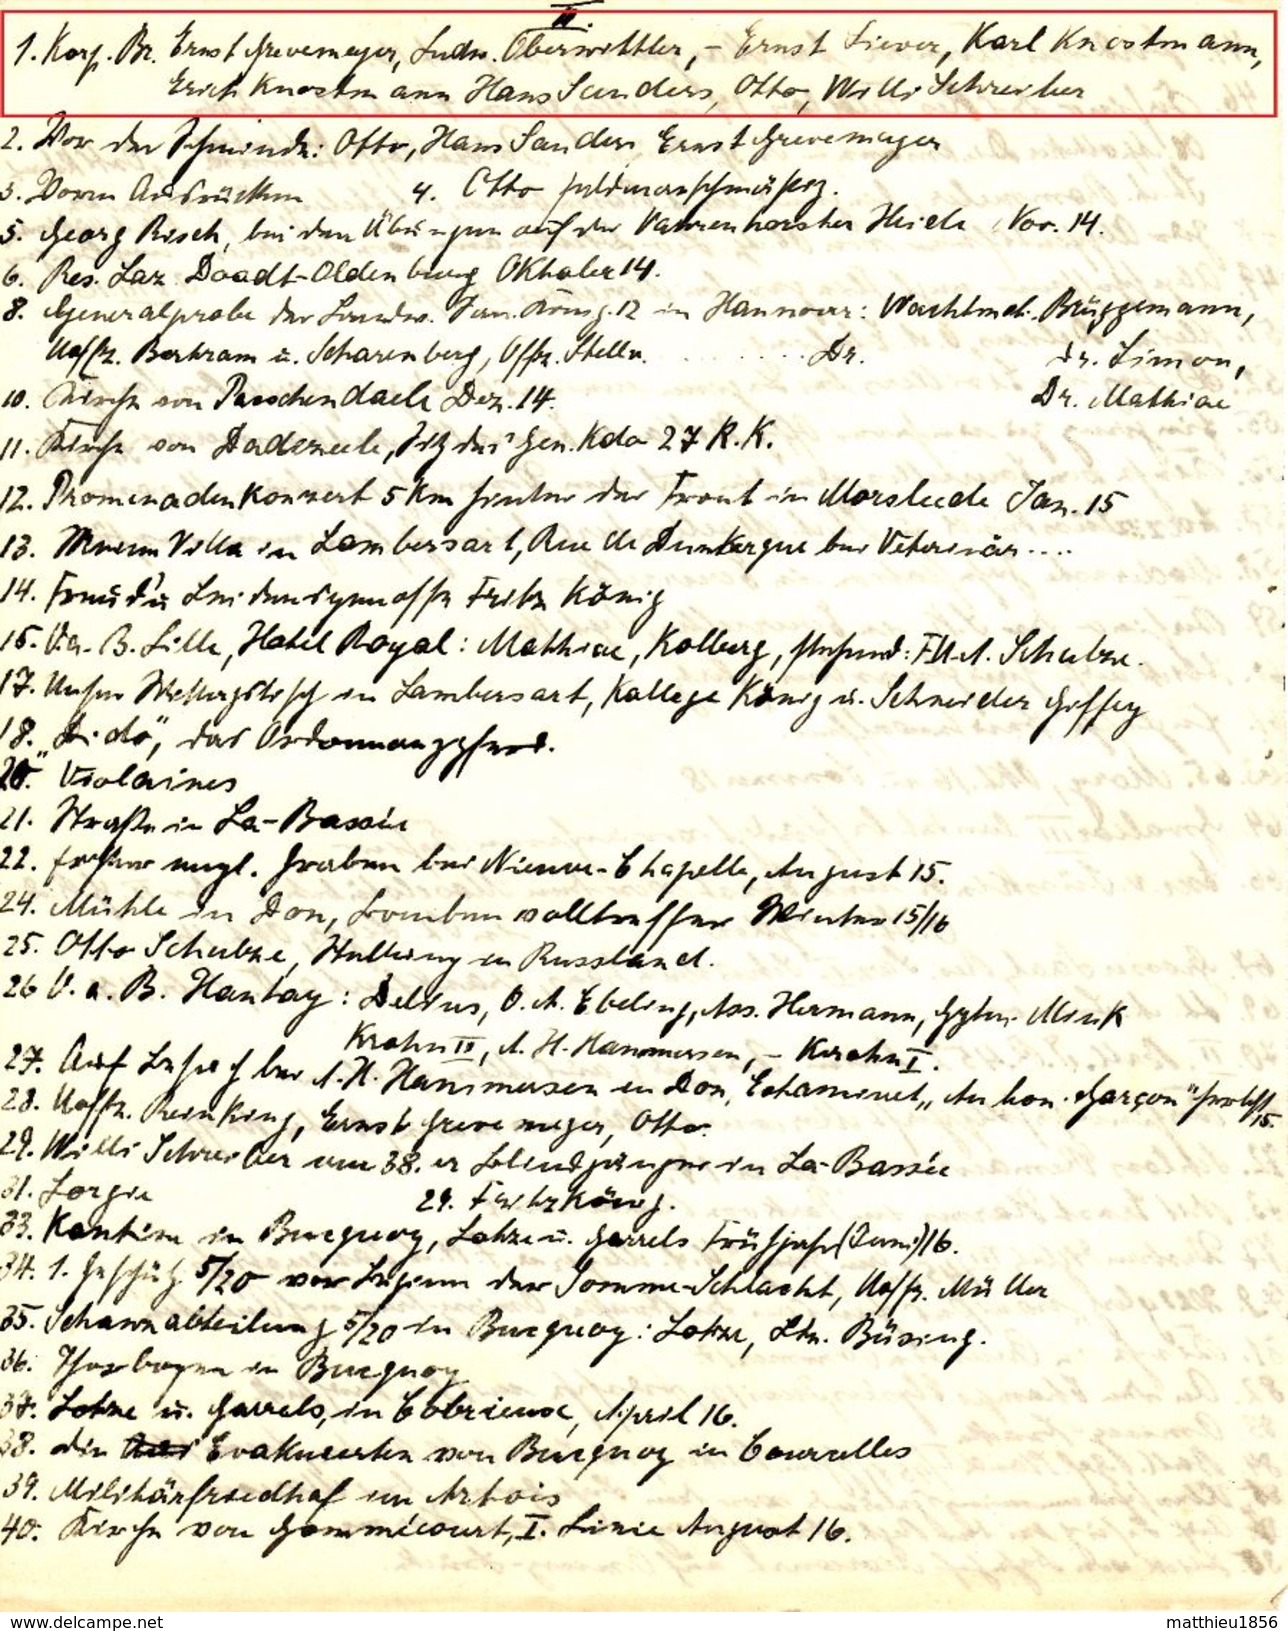 II.
1. Korp. Br. Ernst Grevemeyer, Ludw. Oberwittler, – Ernst Siever, Karl Knostmann,
Erich Knostmann Hans Sanders, Otto, Willi Schreiber
2. Vor der Schmiede: Otto, Hans Sanders Ernst Grevemeyer
3. Vorm Ausrücken 4. Otto feldmarschmäßig.
5. Georg Risch, bei den Übungen auf der Vahrenhorster Heide Nov. 14.
6. Res. Laz Oldenburg Oktober 14.
8. Generalprobe der Landw. 12 in Hannover: Wachtmst. Brüggemann,
Uoffz. Bertram u. Scharenberg, Offz. Stellv. .......... Dr. Dr. Simon,
10. Kirche von Passchendaele Dez. 14. Dr. Mathiae
11. Kirche von Dadizeele, Sitz des Gen. Kdo 27 R. K.
12. Promenadenkonzert 5 km hinter der Front in Morsleede Jan. 15
13. Meine Villa in Lambersart, Rue de Dunkerque bei Veterinär ....
14. Freud u Leidensgenosse Fritz König
15. V. a. B. Lille, Hotel Royal: Mathiae, Kolberg, stehend: F.U.A. Schulze.
17. Unser Mittagstisch in Lambersart, Kollege König u. Schneider
18. "Dido", das Ordonnanzpferd.
20. Violaines
21. Straße in La-Bassée
22. früher engl. Graben bei Nieuve-Chapelle, August 15.
24. Mühle in Don, Bombenvolltreffer Winter 15/16
25. Otto Schulze, Stellung in Russland.
26 V. a. B. Hantay: Delius, O. A. Ebeling, Ass. Hermann, Mink
Krohn II, A. H. Hammersen, – Krohn I.
27. Auf Besuch bei A. H. Hammersen in Don, Estaminet „Au bon Garçon" Herbst 15.
28. Uoffz. Reinking, Ernst Grevemeyer, Otto.
29. Willi Schreiber am 38.er Blindgänger in La-Bassée
31. Lorgie 29. Fritz König.
33. Kantine in Bucquoy, Lohze u. Garrels Frühjahr (Juni) 16.
34. 1. Geschütz 5/20 vor Beginn der Somme-Schlacht, Uoffz. Müller
35. Schanzabteilung 5/20 in Bucquoy: Lohze, Ltn. Büsing.
36. Thorbogen in Bucquoy
37. Lohze u. Garrels, in April 16.
38. die Evakuierten von Bucquoy in Courcelles
39. Militärfriedhof im Artois
40. Kirche von Gommécourt, I. Linie August 16.
www.delcampe.net
matthieu1856